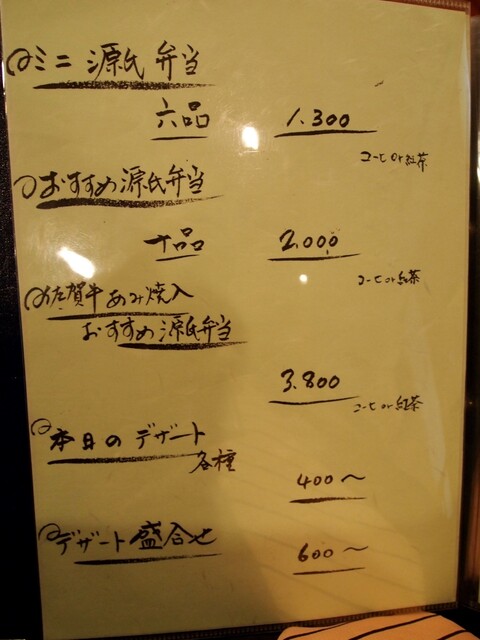 ミニ源氏弁当
六品 1.300
コーヒor紅茶
おすすめ源氏弁当
十品 2.000
コーヒor紅茶
佐賀牛あみ焼入
おすすめ源氏弁当
3.800
コーヒor紅茶
本日のデザート
各種
400～
デザート盛合せ
600～